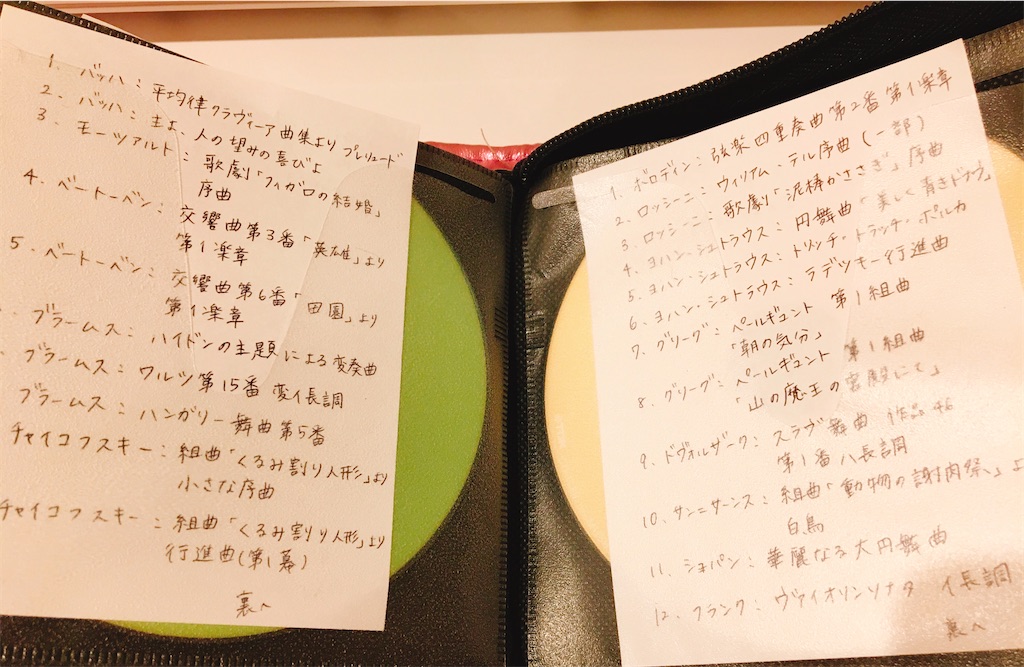 1. バッハ：平均律クラヴィーア曲集より プレリュード
2. バッハ：主よ、人の望みの喜びよ
3. モーツアルト：歌劇「フィガロの結婚」
序曲
4. ベートーベン：交響曲第3番「英雄」より
第1楽章
5. ベートーベン：交響曲第6番「田園」より
第1楽章
ブラームス：ハイドンの主題による変奏曲
ブラームス：ワルツ第15番 変イ長調
ブラームス：ハンガリー舞曲第5番
チャイコフスキー：組曲「くるみ割り人形」より
小さな序曲
チャイコフスキー：組曲「くるみ割り人形」より
行進曲(第1幕)
裏へ
1. ボロディン：弦楽四重奏曲第2番 第1楽章
2. ロッシーニ：ウィリアム・テル序曲(一部)
3. ロッシーニ：歌劇「泥棒かささぎ」序曲
4. ヨハン・シュトラウス：円舞曲「美しく青きドナウ」
5. ヨハン・シュトラウス：トリッチ・トラッチ・ポルカ
6. ヨハン・シュトラウス：ラデツキー行進曲
7. グリーグ：ペールギュント 第1組曲
「朝の気分」
8. グリーグ：ペールギュント 第1組曲
「山の魔王の宮殿にて」
9. ドヴォルザーク：スラヴ舞曲 作品46
第1番ハ長調
10. サン=サーンス：組曲「動物の謝肉祭」よ
白鳥
11. ショパン：華麗なる大円舞曲
12. フランク：ヴァイオリンソナタ イ長調
裏へ